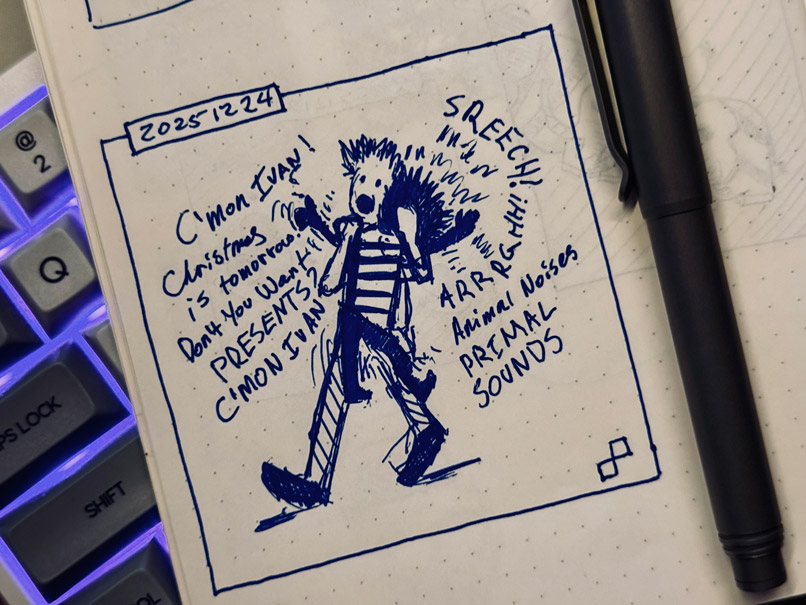 20251224
C'mon IVAN!
Christmas
is tomorrow.
Don't You Want
PRESENTS?
C'MON IVAN
SREECH!
ARRRGHH!
Animal Noises
PRIMAL
SOUNDS
@
2
Q
PS LOCK
SHIFT
OL